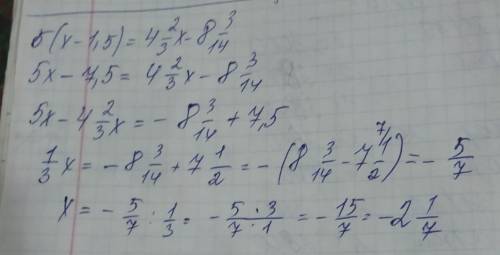 5(x-1,5)=4 2/3 x-8 3/14
5x-7,5=4 2/3 x-8 3/14
5x-4 2/3 x=-8 3/14+7,5
1/3 x=-8 3/14+7 1/2=-(8 3/14-7 1/2 ⁷)=-5/7
x=-5/7:1/3=-5·3/7·1=-15/7=-2 1/7